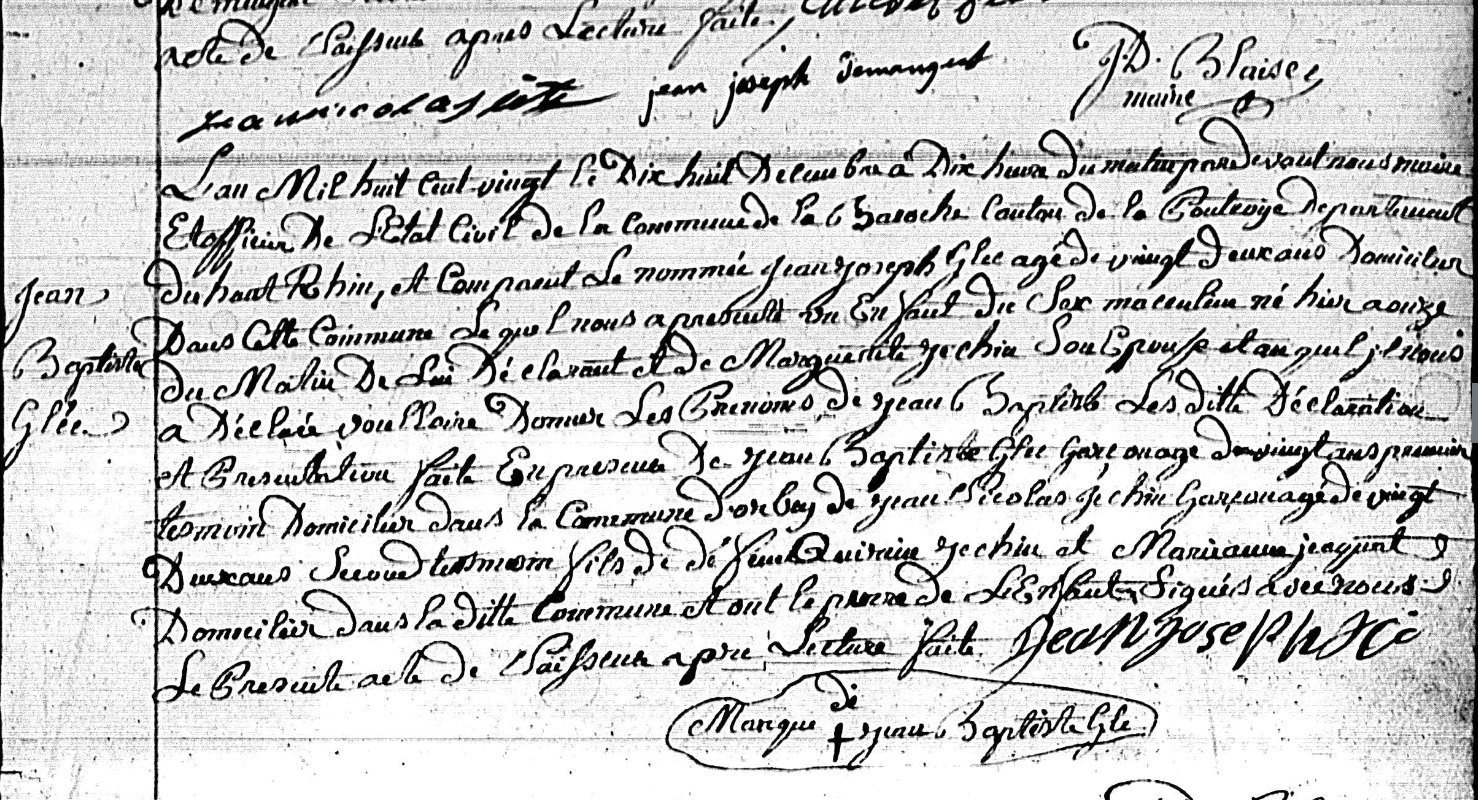 acte de Naissence apres Lecture faite,
jean nicolas
jean joseph demangeat
J.D. Blaise
maire
L'an Mil huit Cent vingt le Dix huit Decembre à Dix heure du matin pardevant nous maire
Et officier De L'Etat Civil de la Commune de la Baroche Canton de la Poutroye Departement
du haut Rhin, et Comparut Le nommée Jean joseph Glee agé de vingt deux ans Domicilier
Dans Cette Commune Le quel nous a presenté un Enfant du Sex masculin né hier a onze
du Matin De Lui Déclarant et de Marguerite jechin Son Epouse et au quel jl nous
a Déclarée voulloire Donner Les Prenoms de jean Baptiste Les ditte Déclaration
et Presentation faite En presence De jean Baptiste Glee Garçon agé de vingt ans premier
tesmoin Domicilier dans la Commune d'orbey de jean Nicolas jechin Garçon agé de vingt
Deux ans Second tesmoin fils de défunt Quirin jechin et Marieanne
Domicilier dans la ditte Commune et ont le perre de L'Enfant Signés avec nous
Le Presente acte de Naissence apré Lecture faite Jean Joseph
Marque de
jean Baptiste Gle
Jean
Baptiste
Glée